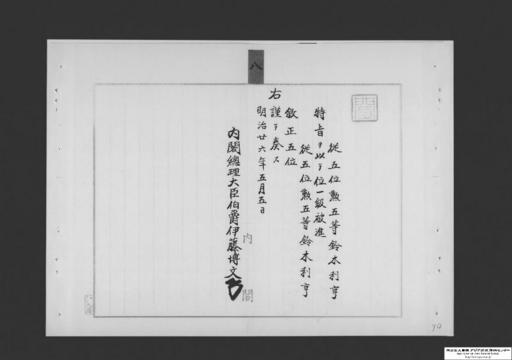 八
從五位勲五等鈴木利亨
特旨ヲ以テ位一級被進
從五位勲五等鈴木利亨
敘正五位
右謹テ奏ス
明治廿六年五月五日
内閣總理大臣伯爵伊藤博文
内閣